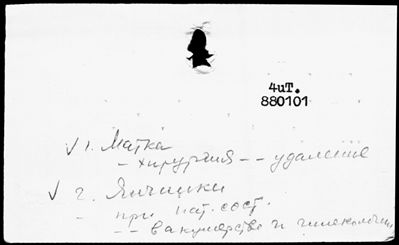 4иТ.
880101
√ 1. Матка
- хирургия -- удаление
√ 2. Яичники
- при пат. сост.
-- в акушерстве и гинекологии